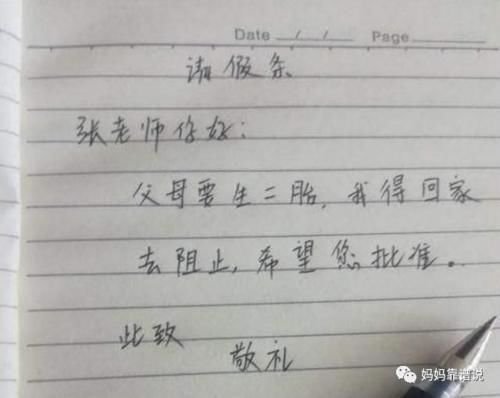 Date / / Page
请假条
张老师你好:
父母要生二胎,我得回家
去阻止,希望您批准。
此致
敬礼
妈妈靠谱说